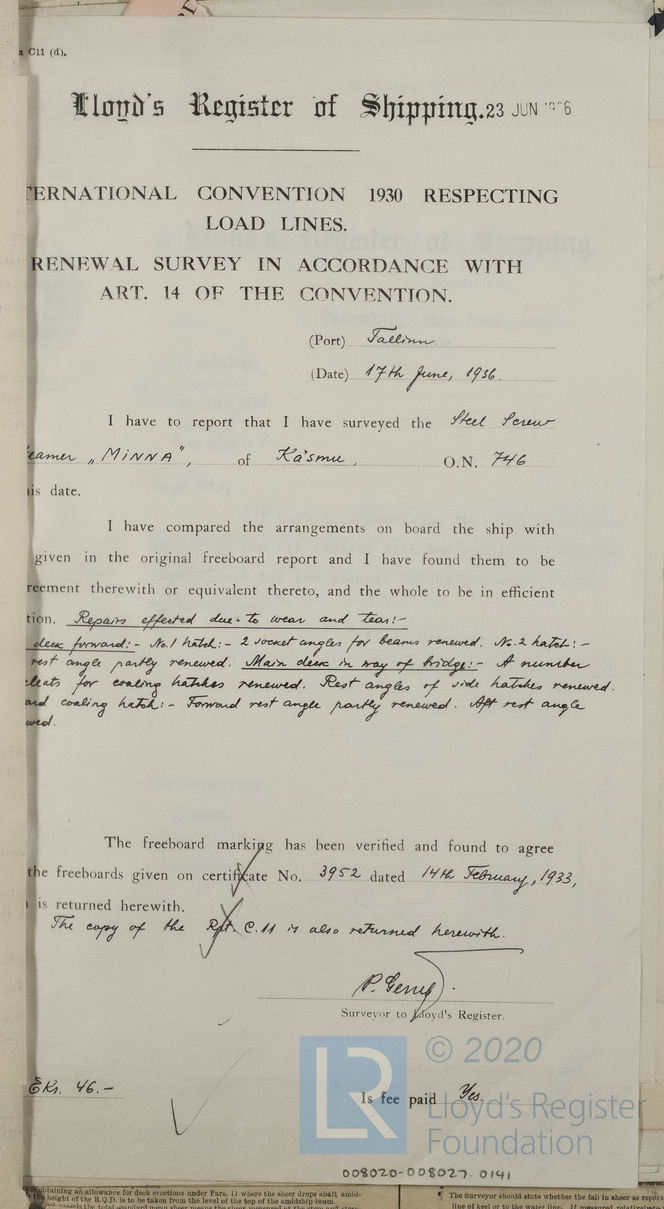 C11 (d).
Lloyd's Register of Shipping. 23 JUN
TERNATIONAL CONVENTION 1930 RESPECTING
LOAD LINES.
RENEWAL SURVEY IN ACCORDANCE WITH
ART. 14 OF THE CONVENTION.
(Port) Tallinn.
(Date) 17th June, 1936.
I have to report that I have surveyed the Steel Screw
eamer „MINNA", of Käsmu, O.N. 746
is date.
I have compared the arrangements on board the ship with
given in the original freeboard report and I have found them to be
reement therewith or equivalent thereto, and the whole to be in efficient
tion. Repairs effected due to wear and tear:-
deck forward:- No.1 hatch:- 2 socket angles for beams renewed. No.2 hatch:-
rest angle partly renewed. Main deck in way of bridge:- A number
cleats for coaling hatches renewed. Rest angles of side hatches renewed.
and coaling hatch:- Forward rest angle partly renewed. Aft rest angle
wed.
The freeboard marking has been verified and found to agree
the freeboards given on certificate No. 3952 dated 14th February, 1933,
is returned herewith.
The copy of the Rpt. C.11 is also returned herewith.
Surveyor to Lloyd's Register.
EKr. 46.-
Is fee paid Yes.
LR
© 2020
Lloyd's Register
Foundation
008020-008027-0141
obtaining an allowance for deck erections under Para. 11 where the sheer drops abaft amid-
height of the R.Q.D. is to be taken from the level of the top of the amidship beam.
The Surveyor should state whether the fall in sheer as report
line of keel or to the water line. If measured